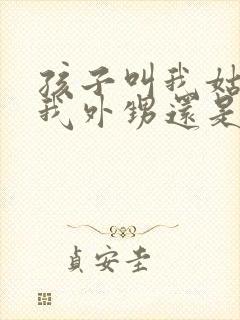 孩子叫我姑
我外甥還是
貞安圭